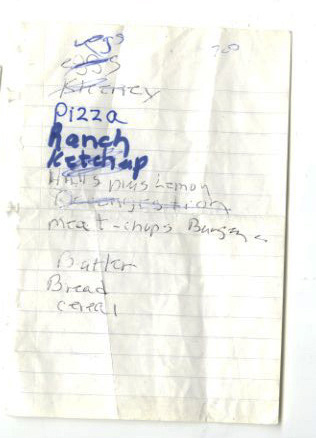 vegs
eggs
Pizza
Ranch
Ketchup
plus Lemon
meat-chops Burgers
Butter
Bread
cereal